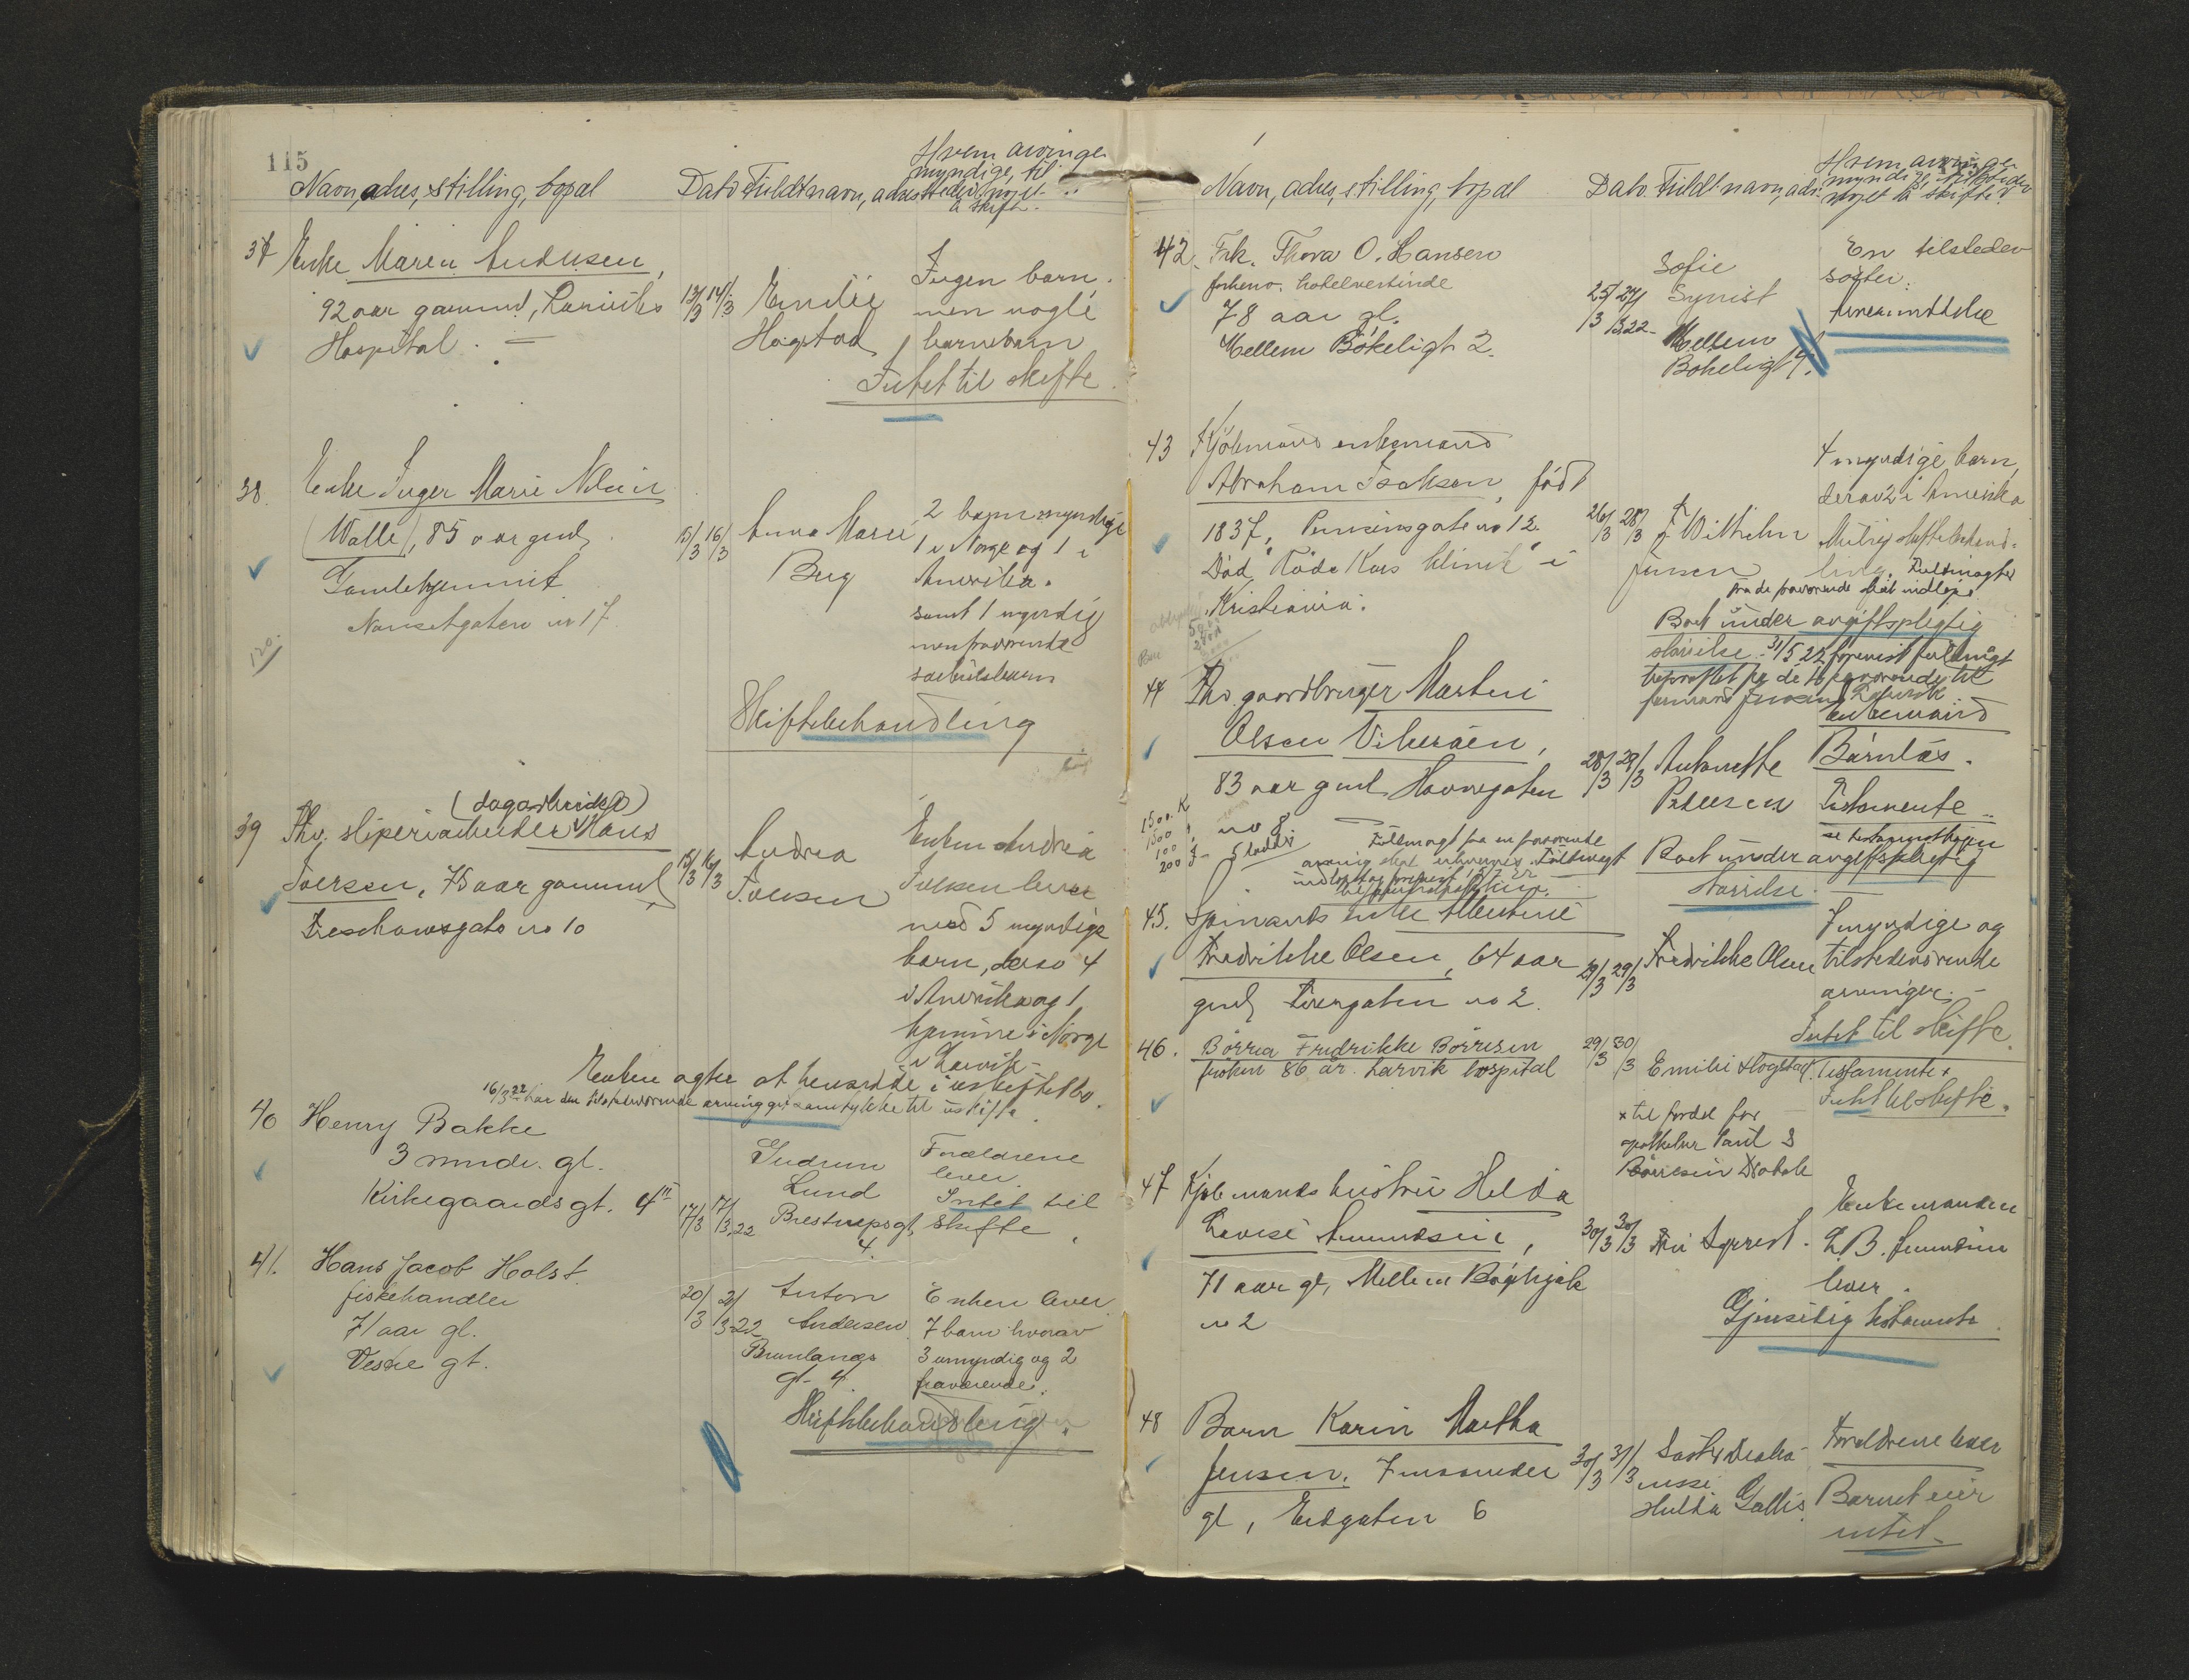 115
Navn, adres, stilling, bopæl Dato Fuldt navn, adres
Hvem arvinger
myndige, til
stede, noget
å skifte.
37 Enke Maren Andersen,
92 aar gammel, Larviks
Hospital.
13/3 14/3 Emilie
Høgstad
Ingen barn,
men nogle
barnebarn
Intet til skifte.
38. Enke Inger Marie Nilsen
(Walle), 85 aar gml,
Gamlehjemmet
Nansetgaten no 17.
15/3 16/3 Anna Marie
Berg
2 barn myndige
1 i Norge og 1 i
Amerika.
samt 1 myndig
men fraværende
særkulsbarn
Skiftebehandling
39 Fhv. sliperiarbeider Hans
(dagarbeider)
Iversen, 75 aar gammel
Treschowsgate no 10
15/3 16/3 Andrea
Iversen
Enken Andrea
Iversen lever
med 5 myndige
barn, derav 4
i Amerika og 1
hjemme i Norge
i Larvik.
Enken agter at hensidde i uskiftet bo.
16/3 22 har den tilstedeværende arving git samtykke til uskifte.
40 Henry Bakke
3 mndr. gl.
Kirkegaardsgt. 4
17/3 17/3.22 Gudrun
Lund
Prestnepsgt.
4.
Forældrene
lever.
Intet til
skifte.
41. Hans Jacob Holst.
fiskehandler
71 aar gl.
Vestre gt.
20/3 21/3-22 Anton
Andersen
Brunlanæs
gt. 4
Enken lever
7 barn hvorav
3 umyndig og 2
fraværende.
Skiftebehandling.
Navn, adres, stilling, bopæl Dato. Fuldt navn, adr.
Hvem arvinger
myndige, tilstede
noget å skifte.
42. Frk. Thora O. Hansen
forhenv. hotelvertinde
78 aar gl.
Mellem Bøkeligt 2.
25/3 27/3.22 Sofie
Syrrist
Mellem
Bøkeligt 4.
En tilsteder
søster.
43 Kjøbmand enkemand
Abraham Isaksen, født
1837, no 12.
Død "Røde Kors klinik" i
Kristiania.
26/3 28/3 Wilhelm
Jensen
4 myndige barn,
derav 2 i Amerika
Mulig skiftebehand-
ling. Fuldmagter
fra de fraværende blit indlagt.
Boet under avgiftspligtig
størrelse. 31/5 22 forevist fuldmagt
44 Fhv. gaardbruger Martin
Olsen Vikerøen,
83 aar gml Havnegaten
no 8
28/3 29/3 Antonette
Petersen
Enkemand
Barnløs.
Testamente
se testamentkopien
Boet under avgiftspligtig
størrelse.
45. enke Albertine
Fredrikke Olsen, 64 aar
gml, Torvgaten no 2.
29/3 29/3 Fredrikke Olsen
7 myndige og
tilstedeværende
arvinger.
Intet til skifte.
46. Børrea Fredrikke Børresen
frøken 86 år. Larvik hospital
29/3 30/3 Emilie Høgstad.
Testamente x
Intet til skifte.
x til fordel for
apotheker Paul S
Børresen Drøbak
47 Kjøbmands hustru Helda
Lovise Amundsen,
71 aar gl, Mellem Bøkeligt
no 2
30/3 30/3 Fru Syrrist.
Enkemanden
L.B. Amundsen
lever.
Gjensidig testamente.
48 Barn Karin Martha
Jensen, 7 maaneder
gl, Eidgaten 6
30/3 31/3 Søster Diako-
nisse
Hulda Gallis.
Forældrene lever
Barnet eier
intet.